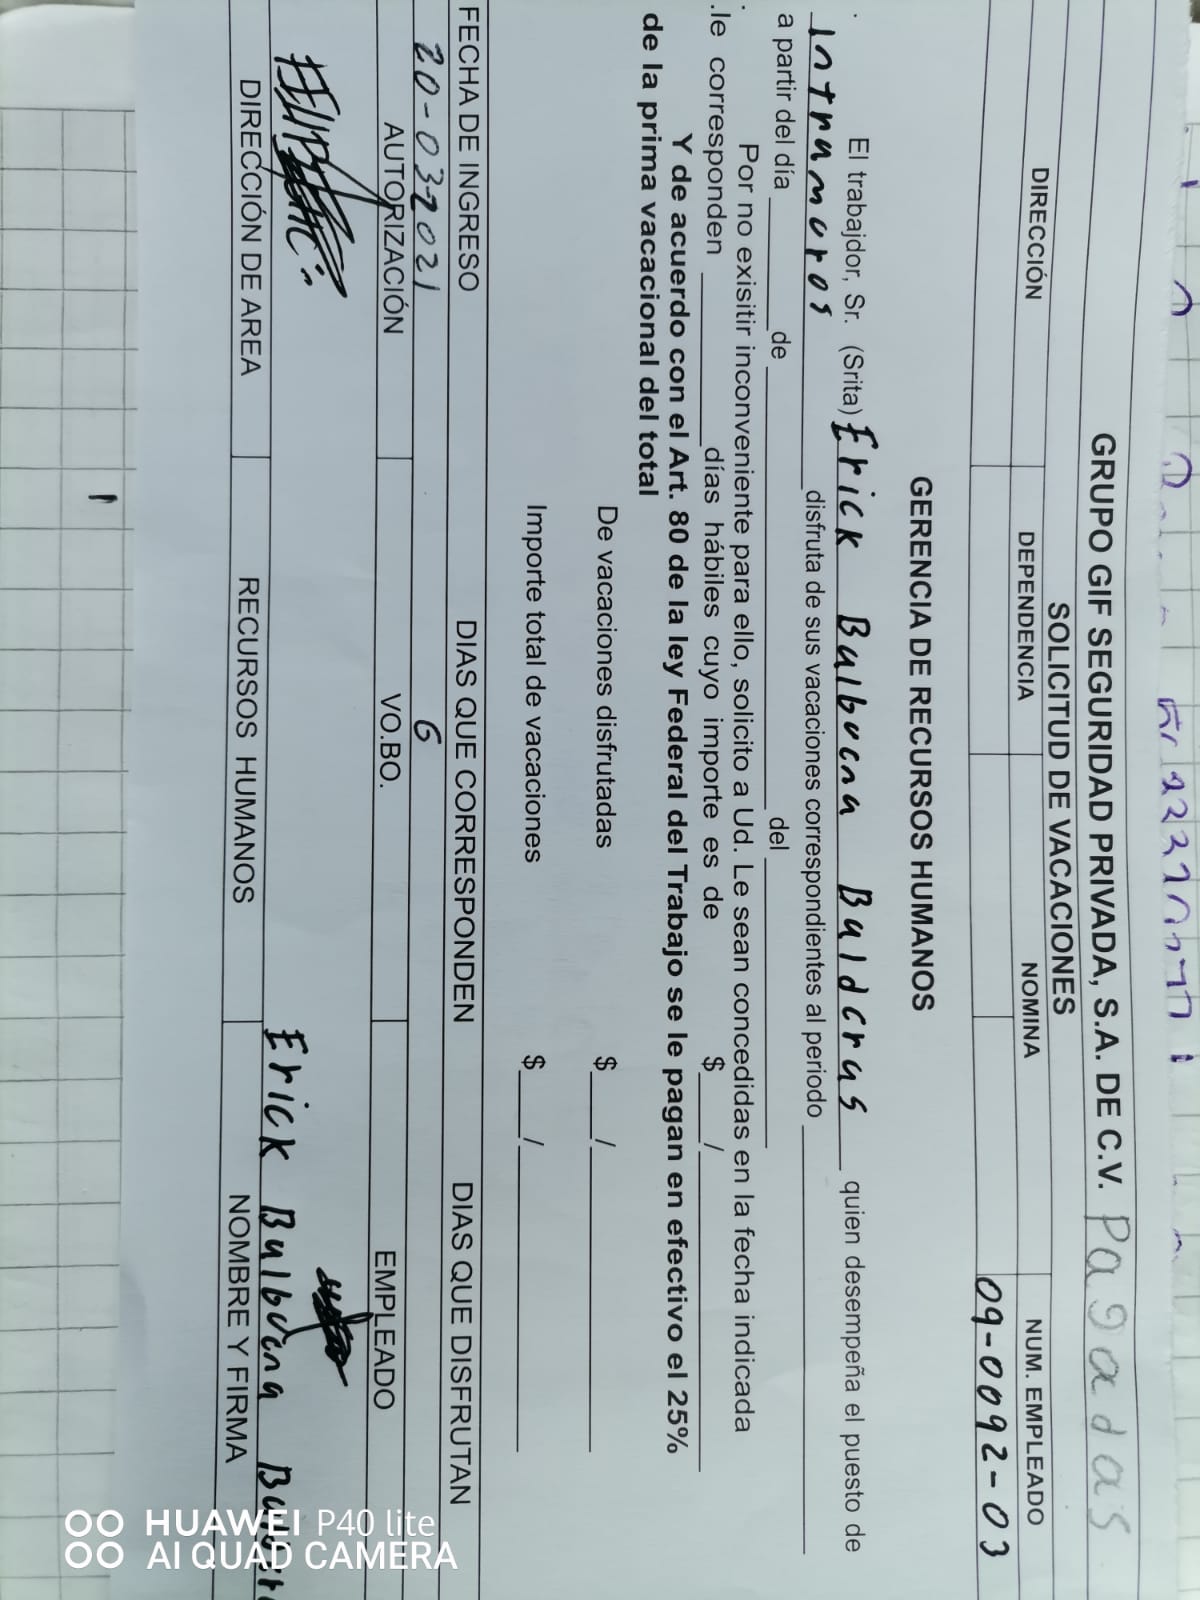 GRUPO GIF SEGURIDAD PRIVADA, S.A. DE C.V. Pagadas
SOLICITUD DE VACACIONES
DIRECCIÓN DEPENDENCIA NOMINA NUM. EMPLEADO
09-0092-03
GERENCIA DE RECURSOS HUMANOS
El trabajdor, Sr. (Srita) Erick Balbuena Balderas quien desempeña el puesto de
Intramuros disfruta de sus vacaciones correspondientes al periodo
a partir del día de del
Por no exisitir inconveniente para ello, solicito a Ud. Le sean concedidas en la fecha indicada
.le corresponden días hábiles cuyo importe es de $ /
Y de acuerdo con el Art. 80 de la ley Federal del Trabajo se le pagan en efectivo el 25%
de la prima vacacional del total
De vacaciones disfrutadas $ /
Importe total de vacaciones $ /
FECHA DE INGRESO DIAS QUE CORRESPONDEN DIAS QUE DISFRUTAN
20-03-2021 6
AUTORIZACIÓN VO.BO. EMPLEADO
Erick Balbuena
DIRECCIÓN DE AREA RECURSOS HUMANOS NOMBRE Y FIRMA
HUAWEI P40 lite
AI QUAD CAMERA